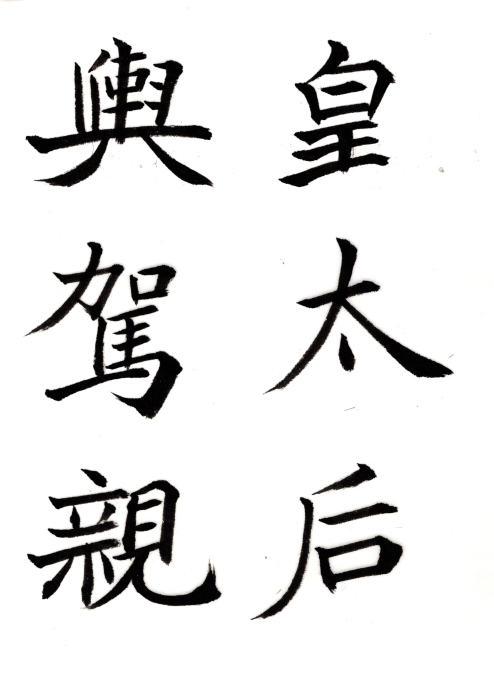 皇太后
輿駕親